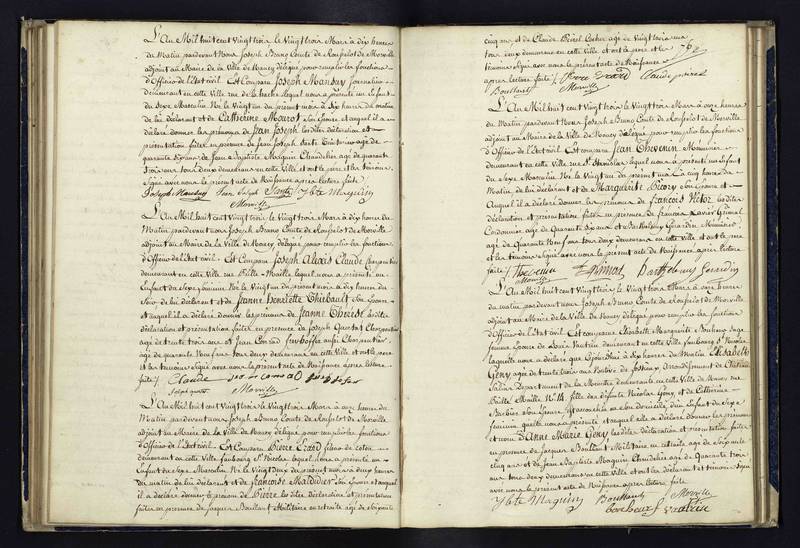 L'An Mil huit cent Vingt trois le Vingt trois Mars à dix heures
du Matin pardevant Nous Joseph Bruno Comte de Rouselot de Morville
adjoint au Maire de la Ville de Nancy délégué pour remplir les fonctions
d'Officier de l'état civil. Est Comparu Joseph Mansuy journalier
demeurant en cette Ville rue de la hache lequel nous a présenté un Enfant
du Sexe Masculin Né le Vingt du présent mois à Six heures du matin
de lui déclarant et de Catherine Marot Son Epouse et auquel il a
déclaré donner les prénoms de Jean Joseph lesdites déclaration et
présentation faites en présence de Jean Joseph Teinturier agé de
quarante Six ans et de Jean Baptiste Maguin Chandelier agé de quarante
trois ans tous deux demeurans en cette Ville et ont le père et les témoins
Signé avec nous le présent acte de Naissance après lecture faite
Joseph Mansuy Jean Joseph J Bte Maguin
Morville
L'An Mil huit cent Vingt trois le Vingt trois Mars à dix heures du
Matin pardevant nous Joseph Bruno Comte de Rouselot de Morville
adjoint au Maire de la Ville de Nancy délégué pour remplir les fonctions
d'Officier de l'état civil. Est Comparu Joseph Alexis Claude Charpentier
demeurant en cette Ville rue Lequel nous a présenté un
Enfant du Sexe féminin Né le Vingt un du présent mois à dix heures du
Soir de lui déclarant et de Jeanne Henriette Thibault Son Epouse
et auquel il a déclaré donner les prénoms de Jeanne Thérèse lesdites
déclaration et présentation faites en présence de Joseph Charpentier
agé de trente trois ans et Jean Conrad aussi Charpentier
agé de quarante Neuf ans tous deux demeurans en cette Ville et ont le père
et les témoins Signé avec nous le présent acte de Naissance après lecture
faite Claude
Morville
L'An Mil huit cent Vingt trois le Vingt trois Mars à onze heures du
Matin pardevant nous Joseph Bruno Comte de Rouselot de Morville
adjoint au Maire de la Ville de Nancy délégué pour remplir les fonctions
d'Officier de l'état civil. Est Comparu Pierre Evard fileur de coton
demeurant en cette Ville faubourg St Nicolas lequel nous a présenté un
Enfant du Sexe Masculin Né le Vingt Deux du présent mois à deux heures
du matin de lui déclarant et de Françoise Maldidier Son Epouse et auquel
il a déclaré donner le prénom de Pierre lesdites déclaration et présentation
faites en présence de Jacques Boullant Militaire en retraite agé de Soixante
cinq ans et de Claude Cocher agé de Vingt trois ans
tous deux demeurans en cette Ville et ont le père et les
témoins Signé avec nous le présent acte de Naissance
après lecture faite
Boullant Morville
L'An Mil huit cent Vingt trois le Vingt trois Mars à onze heures
du Matin pardevant nous Joseph Bruno Comte de Rouselot de Morville
adjoint au Maire de la Ville de Nancy délégué pour remplir les fonctions
d'Officier de l'état civil. Est Comparu Jean Thevenin Menuisier
demeurant en cette Ville rue St Stanislas lequel nous a présenté un Enfant
du Sexe Masculin Né le Vingt du présent mois à cinq heures du
Matin de lui déclarant et de Marguerite Son Epouse et
Auquel il a déclaré donner les prénoms de François Victor lesdites
déclaration et présentation faites en présence de François Xavier Grimal
Cordonnier agé de Quarante Six ans et Barthelemy Gerardin Menuisier
agé de Quarante Neuf ans tous deux demeurans en cette Ville et ont le père
et les témoins Signé avec nous le présent acte de Naissance après lecture
faite Thevenin Grimal Barthelemy Gerardin
Morville
L'An Mil huit cent Vingt trois le Vingt trois Mars à onze heures
du matin pardevant nous Joseph Bruno Comte de Rouselot de Morville
adjoint au Maire de la Ville de Nancy délégué pour remplir les fonctions
d'Officier de l'état civil. Est comparue Elisabeth Marguerite Bonheur Sage
femme Epouse de Louis Vautrin demeurant en cette Ville faubourg St Nicolas
laquelle nous a déclaré que à Six heures du Matin Elisabeth
Geny agée de trente trois ans Native de Arrondissement de Château
Salins Département de la Meurthe demeurante en cette Ville de Nancy rue
No 11 fille des défunts Nicolas Geny, et de Catherine
Barbier Son Epouse est accouchée en Son domicile d'un Enfant du Sexe
féminin quelle nous a présenté et auquel elle a déclaré donner les prénoms
et nom d'Anne Marie Geny lesdites déclaration et présentation faites
en présence de Jacques Boullant Militaire en retraite agé de Soixante
cinq ans et de Jean Baptiste Maguin Chandelier agé de Quarante trois
ans tous deux demeurans en cette Ville et ont les déclarant et témoins Signé
avec nous le présent acte de Naissance après lecture faite
J Bte Maguin Boullant Morville
bonheur f vautrin